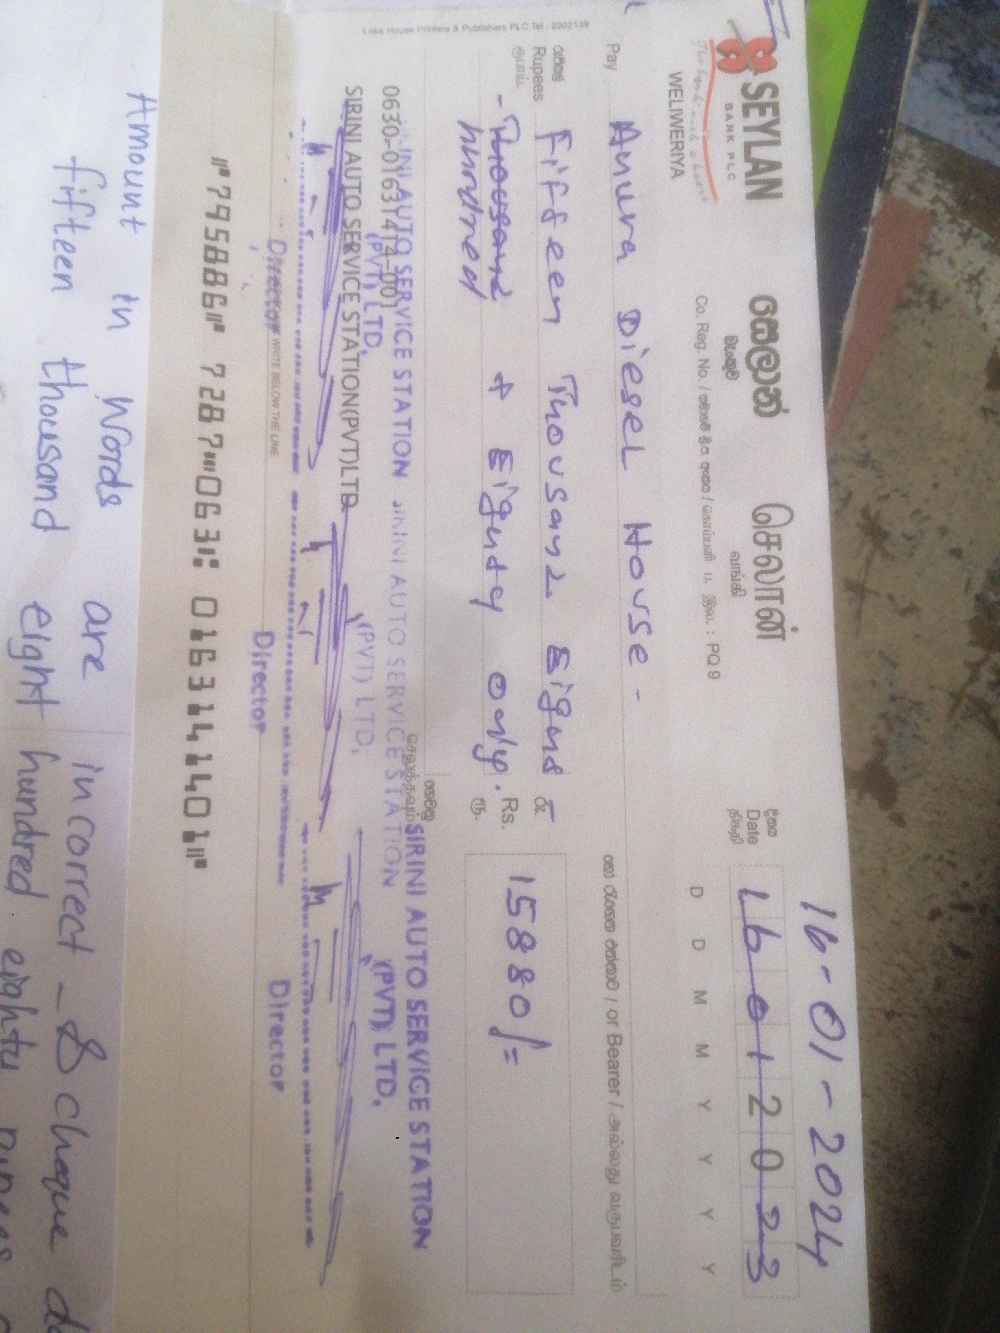 16-01-2024
SEYLAN සෙලාන් செலான்
BANK PLC බැංකුව வங்கி
The bank with a heart
දිනය
Date
திகதி
16012023
D D M M Y Y Y Y
WELIWERIYA
Co. Reg. No. / PQ9
Pay Anura Diesel House - or Bearer /
රුපියල්
Rupees
ரூபாய்
Fifteen Thousand Eight
- Thousand hundred & Eighty only.
රු.
Rs.
ரூ.
15880/=
0630-01631414-001
SIRINI AUTO SERVICE STATION(PVT)LTD
SIRINI AUTO SERVICE STATION
(PVT) LTD,
SIRINI AUTO SERVICE STATION
(PVT) LTD,
SIRINI AUTO SERVICE STATION
(PVT) LTD,
Director
Director
Director
WRITE BELOW THE LINE
Lake House Printers & Publishers PLC Tel : 2302139
⑈795886⑈ 7287⑉063⑆ 0163141401⑈
Amount in words are incorrect - & cheque
fifteen thousand eight hundred eighty rupees